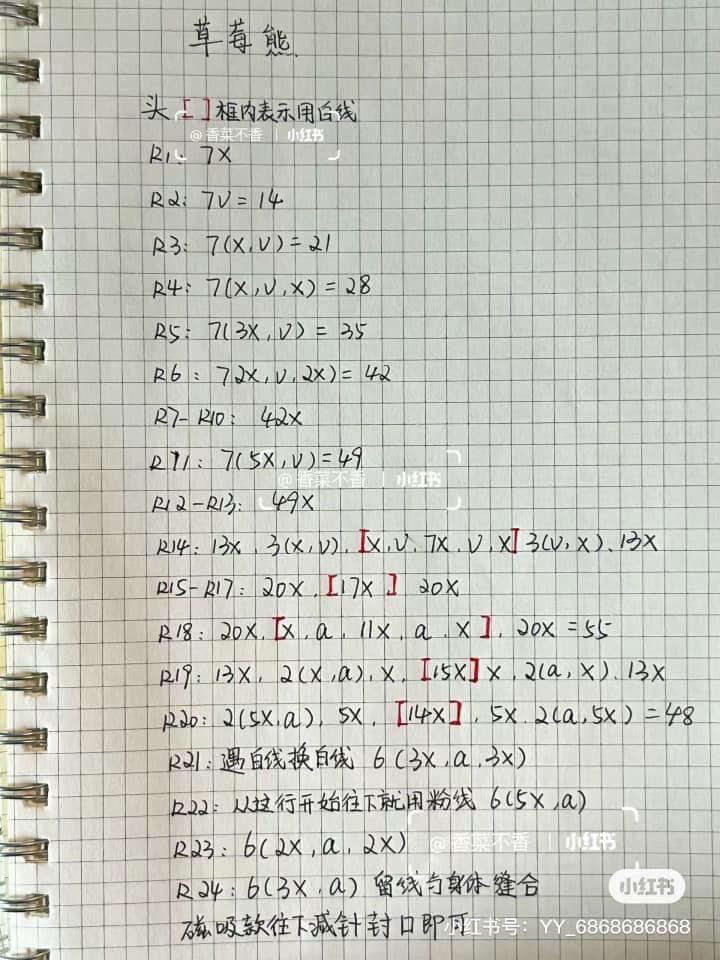 草莓熊
头 [ ] 框内表示用白线
@香菜不香 | 小红书
R1: 7X
R2: 7V = 14
R3: 7(X,V) = 21
R4: 7(X,V,X) = 28
R5: 7(3X,V) = 35
R6 : 7 2X,V,2X) = 42
R7-R10: 42X
R11: 7(5X,V) = 49
@香菜不香 | 小红书
R12-R13: 49X
R14: 13X, 3(X,V), [X,V,7X,V,X] 3(V,X), 13X
R15-R17: 20X, [17X] 20X
R18: 20X, [X, A, 11X, A, X], 20X = 55
R19: 13X, 2(X,A), X, [15X] X, 2(A,X), 13X
R20: 2(5X,A), 5X, [14X], 5X, 2(A,5X) = 48
R21: 遇白线换白线 6(3X,A,3X)
R22: 从这行开始往下就用粉线 6(5X,A)
R23: 6(2X,A,2X)
@香菜不香 | 小红书
R24: 6(3X,A) 留线与身体缝合
小红书
磁吸款往下减针封口即可
小红书号: YY_6868686868